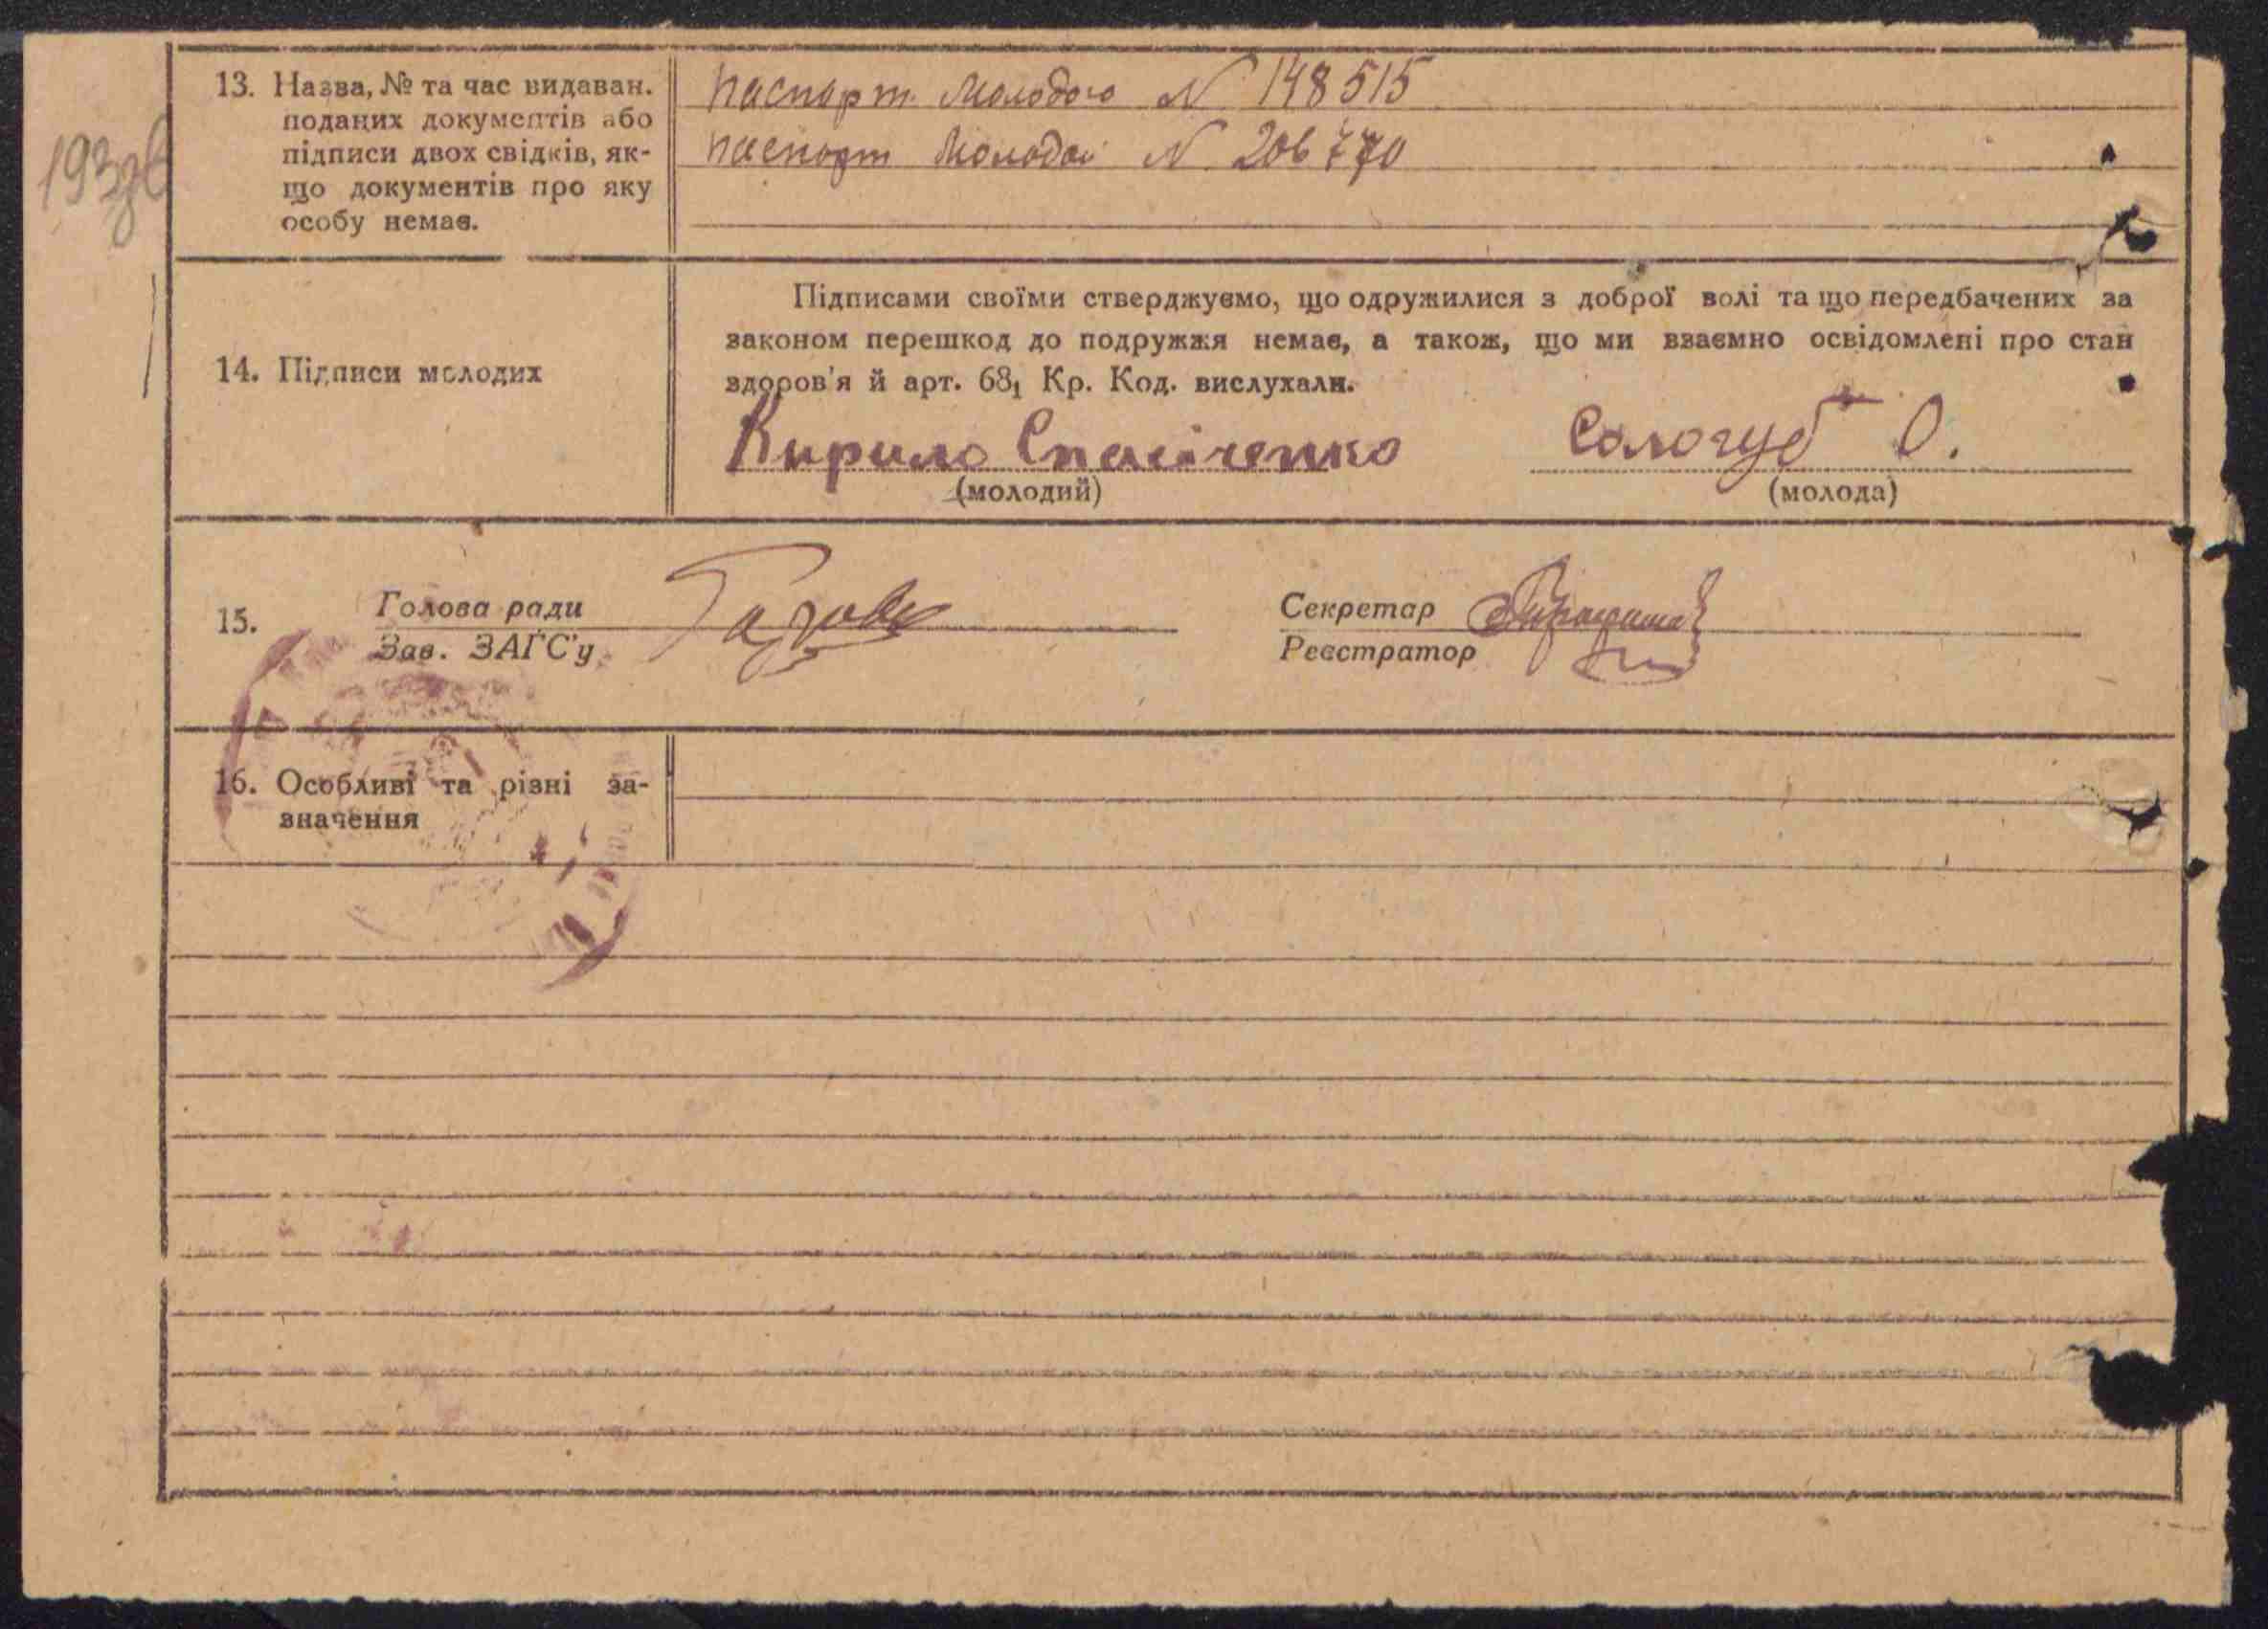 13. Назва, № та час видаван.
поданих документів або
підписи двох свідків, як-
що документів про яку
особу немає.
паспорт молодого N 148515
паспорт молодой N 206770
14. Підписи молодих
Підписами своїми стверджуємо, що одружилися з доброї волі та що передбачених за
законом перешкод до подружжя немає, а також, що ми взаємно освідомлені про стан
здоров'я й арт. 68₁ Кр. Код. вислухали.
Кирило Спасіченко
Сологуб О.
(молодий)
(молода)
15.
Голова ради
Зав. ЗАҐС'у
Секретар
Реєстратор
16. Особливі та різні за-
значення